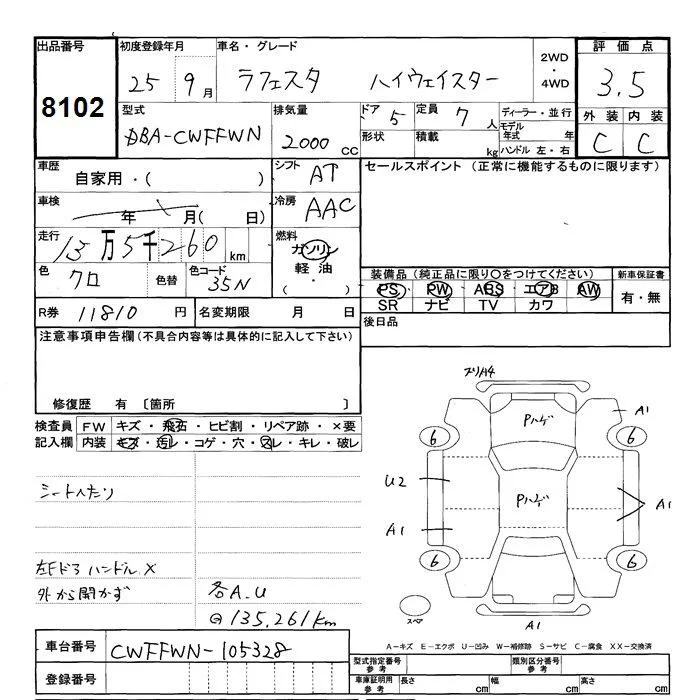 出品番号
8102
初度登録年月
25年 9月
車名・グレード
ラフェスタ ハイウェイスター
2WD
・
4WD
評価点
3.5
外装 内装
C C
型式
DBA-CWFFWN
排気量
2000 cc
ドア 5
形状
定員 7 人
積載 kg
ディーラー・並行
モデル年式 年
ハンドル 左・右
車歴
自家用・( )
シフト
AT
セールスポイント (正常に機能するものに限ります)
車検
年 月( 日)
冷房
AAC
走行
13万5千260 km
燃料
ガソリン
軽油
( ・ )
色
クロ
色替
色コード
35N
装備品 (純正品に限り〇をつけてください)
新車保証書
PS PW ABS エアB AW
有・無
SR ナビ TV カワ
R券 11810 円
名変期限 月 日
後日品
注意事項申告欄(不具合内容等は具体的に記入して下さい)
修復歴 有 〔箇所 〕
検査員
記入欄
FW キズ・飛石・ヒビ割・リペア跡・×要
内装 キズ・汚レ・コゲ・穴・スレ・キレ・破レ
シートヘたり
左Fドア ハンドル X
外から開かず
各A.U
@135,261km
スリA4
Pハゲ
A1
6
6
U2
Pハゲ
A1
A1
6
6
スペア
A1
車台番号
CWFFWN-105328
登録番号
A-キズ E-エクボ U-凹み W-補修跡 S-サビ C-腐食 XX-交換済
型式指定番号
参考
類別区分番号
参考
車庫証明用
参考
長さ cm
幅 cm
高さ cm